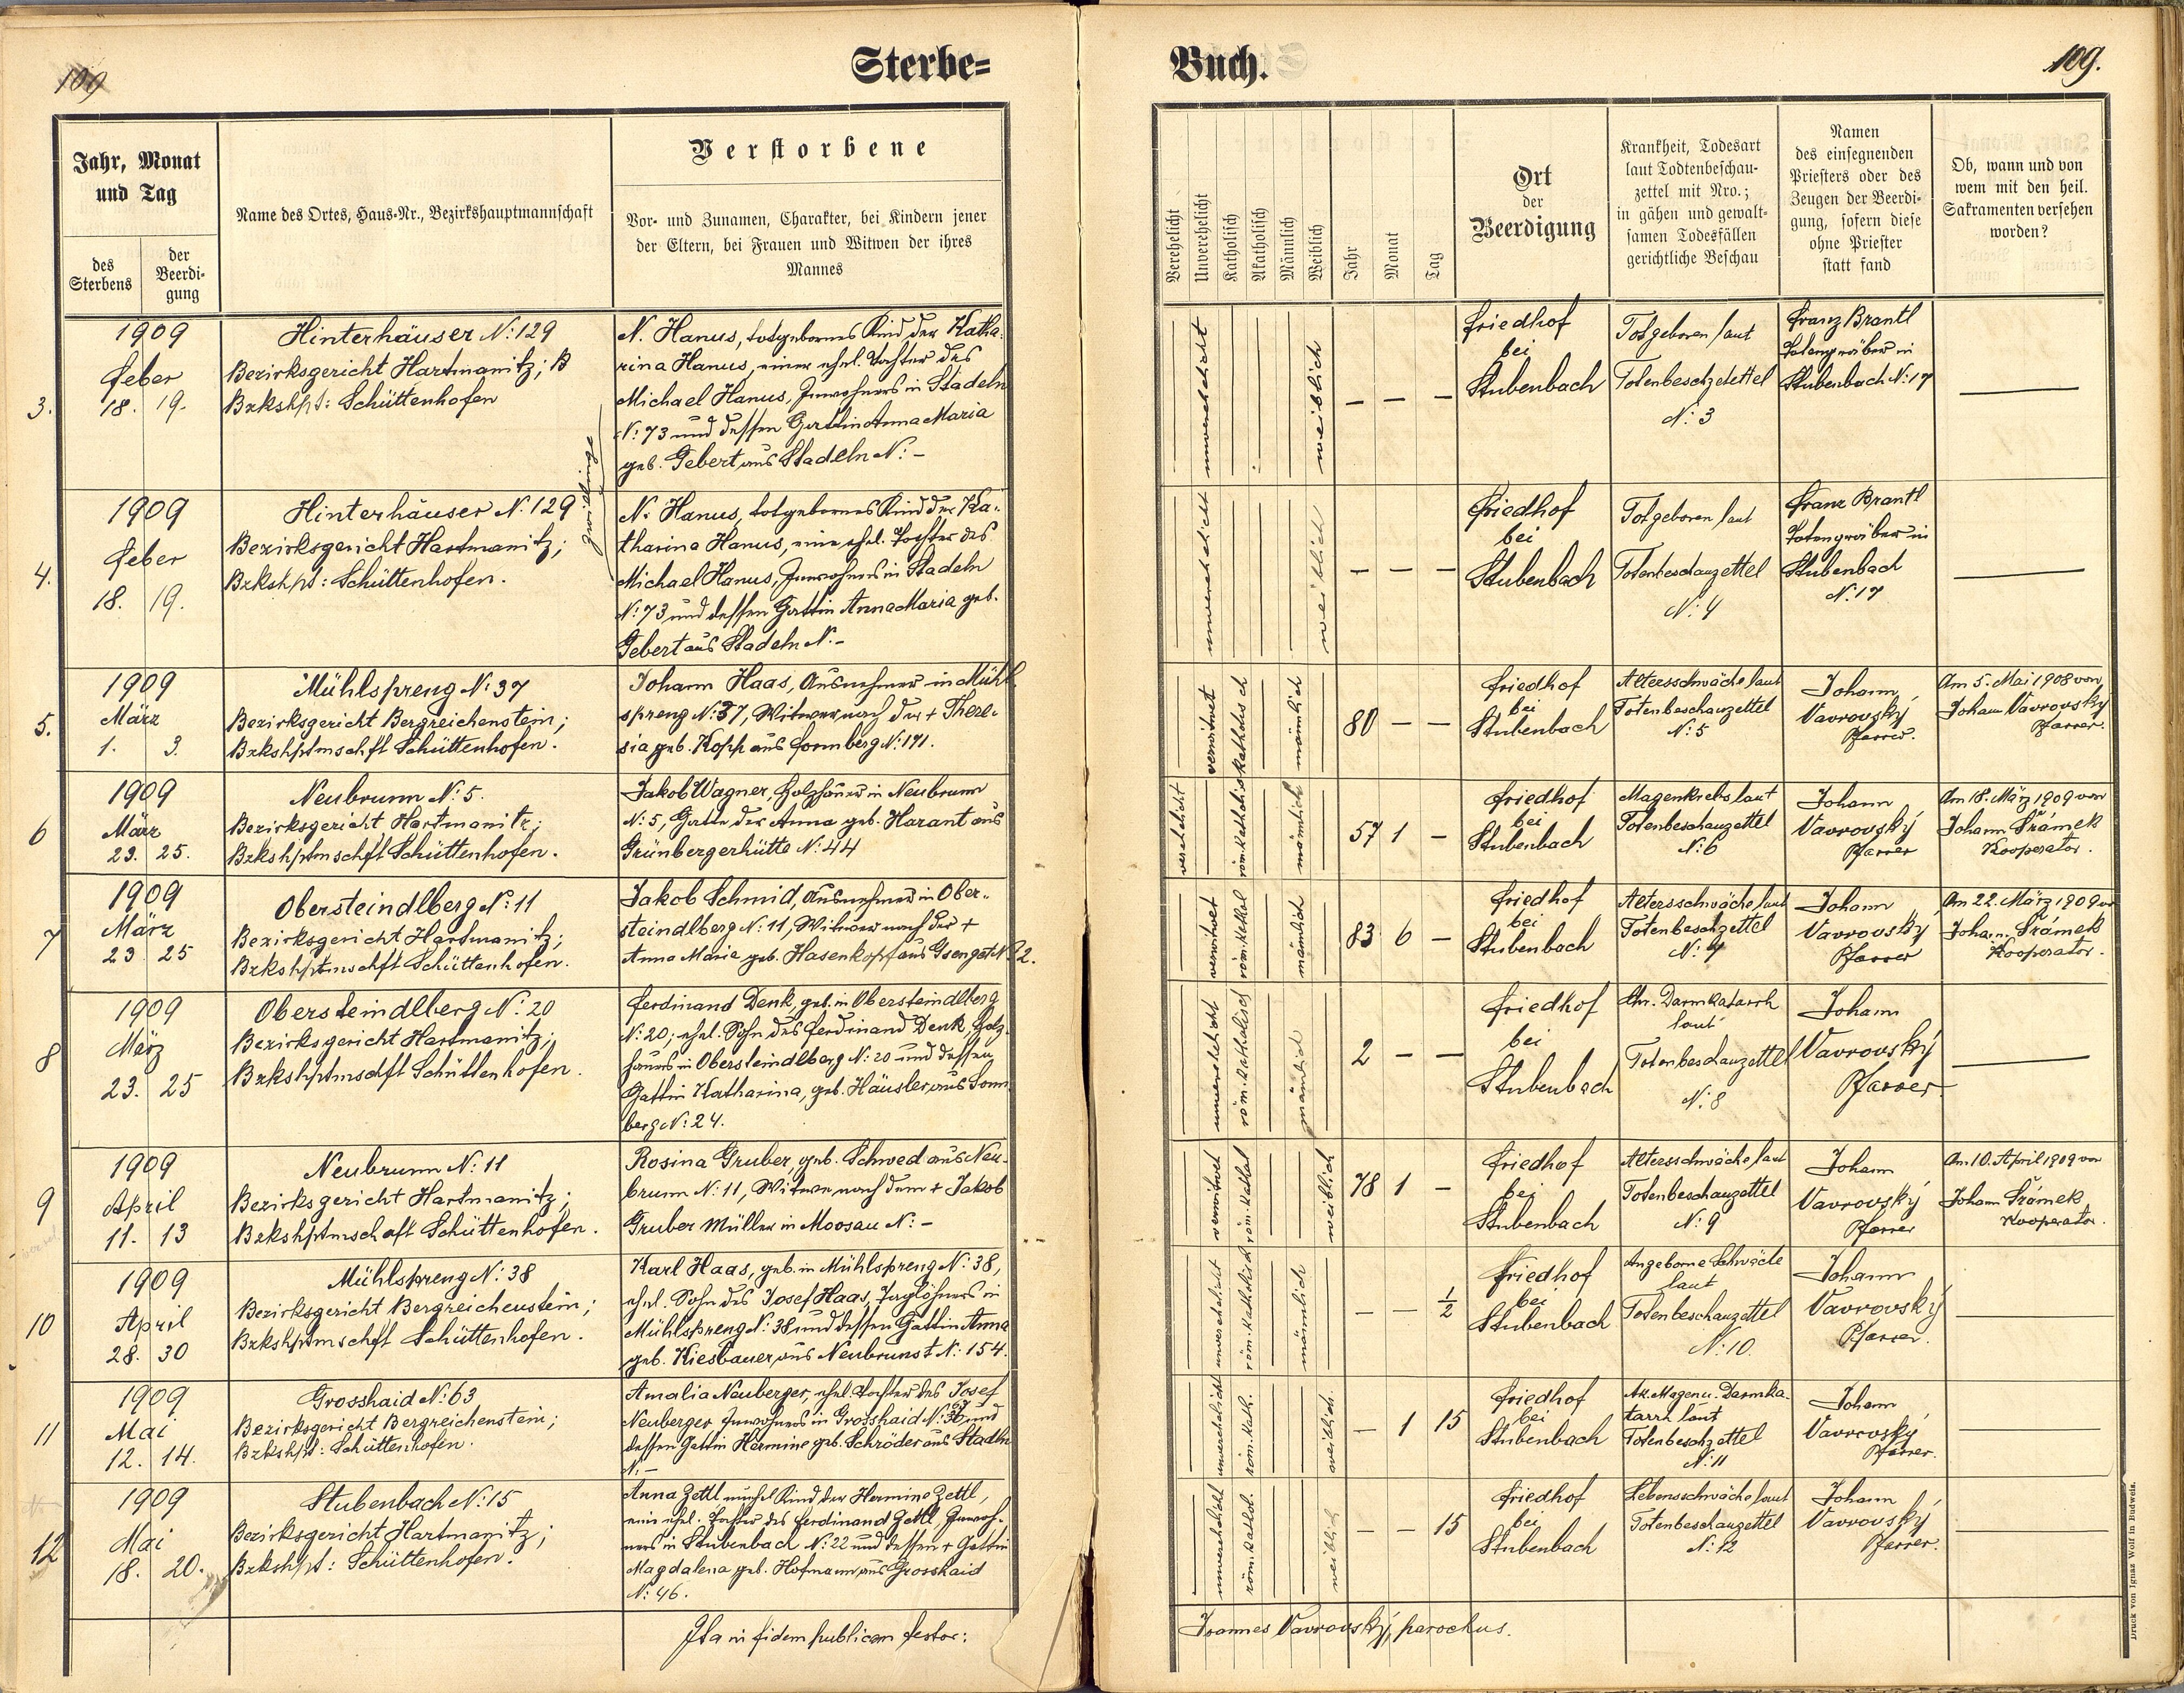 109
Sterbe=
Buch.
109.
Jahr, Monat
und Tag
des
Sterbens
der
Beerdi-
gung
Name des Ortes, Haus-Nr., Bezirkshauptmannschaft
Verstorbene
Vor- und Zunamen, Charakter, bei Kindern jener
der Eltern, bei Frauen und Witwen der ihres
Mannes
Verehelicht
Unverehelicht
Katholisch
Akatholisch
Männlich
Weiblich
Jahr
Monat
Tag
Ort
der
Beerdigung
Krankheit, Todesart
laut Todtenbeschau-
zettel mit Nro.;
in gähen und gewalt-
samen Todesfällen
gerichtliche Beschau
Namen
des einsegnenden
Priesters oder des
Zeugen der Beerdi-
gung, sofern diese
ohne Priester
statt fand
Ob, wann und von
wem mit den heil.
Sakramenten versehen
worden?
3.
1909
Feber
18. 19.
Hinterhäuser N: 129
Bezirksgericht Hartmanitz; B
Bzkshpt: Schüttenhofen
Zwillinge
N. Hanus, totgebornes Kind der Katha-
rina Hanus, einer ehel. Tochter des
Michael Hanus, Inwohners in Stadeln
N: 73 und dessen Gattin Anna Maria
geb. Gebert aus Stadeln N: -
unverehelicht
weiblich
— — —
Friedhof
bei
Stubenbach
Totgeboren laut
Totenbeschzettel
N: 3
Franz Brantl
Totengräber in
Stubenbach N: 17
4.
1909
Feber
18. 19.
Hinterhäuser N. 129
Bezirksgericht Hartmanitz;
Bzkshpt: Schüttenhofen.
N. Hanus, totgebornes Kind der Ka-
tharina Hanus, eine ehel. Tochter des
Michael Hanus, Inwohners in Stadeln
N: 73 und dessen Gattin Anna Maria geb.
Gebert aus Stadeln N. -
unverehelicht
weiblich
— — —
Friedhof
bei
Stubenbach
Totgeboren laut
Totenbeschauzettel
N: 4
Franz Brantl
Totengräber in
Stubenbach
N: 17
5.
1909
März
1. 3.
Mühlspreng N: 37
Bezirksgericht Bergreichenstein;
Bzkshptmschft Schüttenhofen.
Johann Haas, Ausnehmer in Mühl
spreng N: 37, Witwer nach der + There-
sia geb. Kopp aus Sonnberg N: 191.
verwitwet
katholisch
männlich
80 — —
Friedhof
bei
Stubenbach
Altersschwäche laut
Totenbeschauzettel
N: 5
Johann
Vavrovský
Pfarrer.
Am 5. Mai 1908 von
Johann Vavrovský
Pfarrer.
6
1909
März
23. 25.
Neubrunn N: 5.
Bezirksgericht Hartmanitz;
Bzkshptmschft Schüttenhofen.
Jakob Wagner, Holzhauer in Neubrunn
N: 5, Gatte der Anna geb. Harant aus
Grünbergerhütte N: 44
verehelicht
männlich
57 1 —
Friedhof
bei
Stubenbach
Magenkrebs laut
Totenbeschauzettel
N: 6
Johann
Vavrovský
Pfarrer
Am 18. März 1909 von
Johann Šrámek
Kooperator.
7
1909
März
23 25
Obersteindlberg N: 11
Bezirksgericht Hartmanitz;
Bzkshptmschft Schüttenhofen.
Jakob Schmid, Ausnehmer in Ober-
steindlberg N: 11, Witwer nach der +
Anna Maria geb. Hasenkopf aus Gsenget N: 2.
verwitwet
männlich
83 6 —
Friedhof
bei
Stubenbach
Altersschwäche laut
Totenbeschzettel
N: 7
Johann
Vavrovský
Pfarrer
Am 22. März 1909 von
Johann Šrámek
Kooperator.
8
1909
März
23. 25
Obersteindlberg N: 20
Bezirksgericht Hartmanitz;
Bzkshptmschft Schüttenhofen.
Ferdinand Denk, geb. in Obersteindlberg
N: 20; ehel. Sohn des Ferdinand Denk, Holz-
hauers in Obersteindlberg N: 20 und dessen
Gattin Katharina, geb. Häusler aus Sonn-
berg N: 24.
unverehelicht
röm. katholisch
männlich
2 — —
Friedhof
bei
Stubenbach
Chr. Darmkatarrh
laut
Totenbeschauzettel
N: 8
Johann
Vavrovský
Pfarrer
9
1909
April
11. 13
Neubrunn N: 11
Bezirksgericht Hartmanitz;
Bzkshptmschaft Schüttenhofen.
Rosina Gruber, geb. Schwed aus Neu-
brunn N: 11, Witwe nach dem + Jakob
Gruber Müller in Moosau N: -
verwitwet
röm. kathol
weiblich
78 1 —
Friedhof
bei
Stubenbach
Altersschwäche laut
Totenbeschauzettel
N: 9
Johann
Vavrovský
Pfarrer
Am 10. April 1909 von
Johann Šrámek
Kooperator.
10
1909
April
28. 30
Mühlspreng N: 38
Bezirksgericht Bergreichenstein;
Bzkshptmschft Schüttenhofen.
Karl Haas, geb. in Mühlspreng N: 38,
ehel. Sohn des Josef Haas, Taglöhners in
Mühlspreng N: 38 und dessen Gattin Anna
geb. Kiesbauer aus Neubrunst N: 154.
unverehelicht
röm. katholisch
männlich
— — 1/2
Friedhof
bei
Stubenbach
Angeborne Schwäche
laut
Totenbeschauzettel
N: 10.
Johann
Vavrovský
Pfarrer.
11
1909
Mai
12. 14.
Grosshaid N: 63
Bezirksgericht Bergreichenstein;
Bzkshpt: Schüttenhofen.
Amalia Neuberger, ehel. Tochter des Josef
Neuberger Inwohners in Grosshaid N: 63 und
dessen Gattin Hermine geb. Schröder aus Stadln
N: -
unverehelicht
röm. kath.
weiblich.
— 1 15
Friedhof
bei
Stubenbach
Ak. Magen u. Darmka-
tarrh laut
Totenbeschzettel
N: 11
Johann
Vavrovský
Pfarrer.
12
1909
Mai
18. 20.
Stubenbach N: 15
Bezirksgericht Hartmanitz;
Bzkshpt: Schüttenhofen.
Anna Zettl unehel Kind der Hermine Zettl,
eine ehel. Tochter des Ferdinand Zettl, Inwoh-
ners in Stubenbach N: 22 und dessen + Gattin
Magdalena geb. Hofmann aus Grosshaid
N: 46.
unverehelicht
röm. kathol.
weiblich
— — 15
Friedhof
bei
Stubenbach
Lebensschwäche laut
Totenbeschauzettel
N: 12
Johann
Vavrovský
Pfarrer.
Ita in fidem publicam testor:
Joannes Vavrovský, parochus.
Druck von Ignaz Wolf in Budweis.